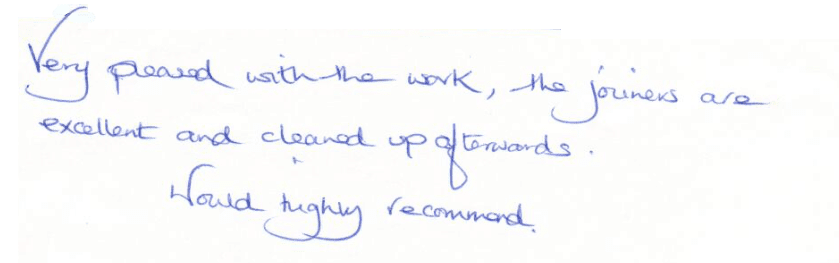 Very pleased with the work, the joiners are
excellent and cleaned up afterwards.
Would highly recommend.